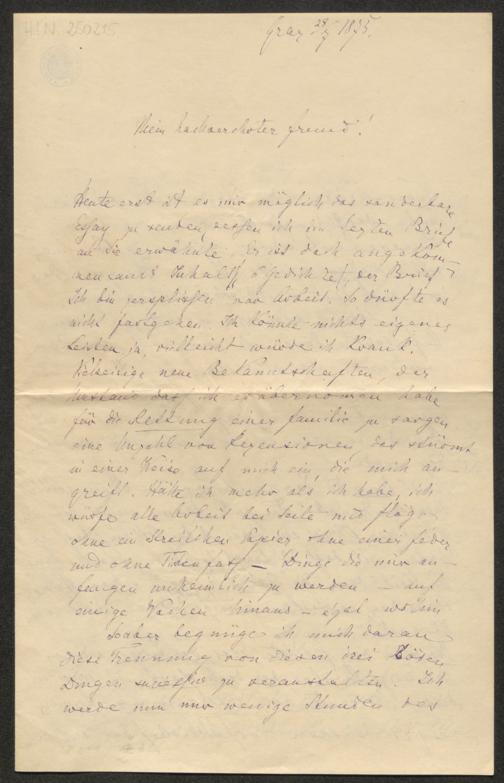 H.I.N. 250215
Graz 29/7 1895.
Mein hochverehrter Freund!
Heute erst ist es mir möglich das sonderbare
Essay zu senden, dessen ich im letzten Briefe
an Sie erwähnte. Er ist doch angekom-
men sammt Inhalt (Gedichte), der Brief?
Ich bin zerschlissen vor Arbeit. So dürfte es
nicht fortgehen. Ich könnte nichts eigenes
leisten, ja, vielleicht würde ich krank.
neue Bekanntschaften, der
Umstand daß ich es übernommen habe
für die Rettung einer Familie zu sorgen
eine Anzahl von Rezensionen, das stürmt
in einer Weise auf mich ein, die mich an-
greift. Hätte ich mehr als ich habe, ich
würfe alle Arbeit bei Seite und flöge
ohne ein Streifchen Papier ohne eine Feder
und ohne Tintenfaß – Dinge die mir an-
fangen unheimlich zu werden – auf
einige Wochen hinaus – egal wohin
So aber begnüge ich mich daran
diese Trennung von diesen drei bösen
Dingen zu veranstalten. Ich
werde nun nur wenige Stunden des